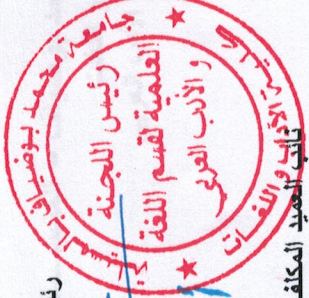 جامعة محمد بوضياف بالمسيلة
كلية الآداب واللغات
رئيس اللجنة
العلمية لقسم اللغة
و الأدب العربي
نائب العميد المكلف